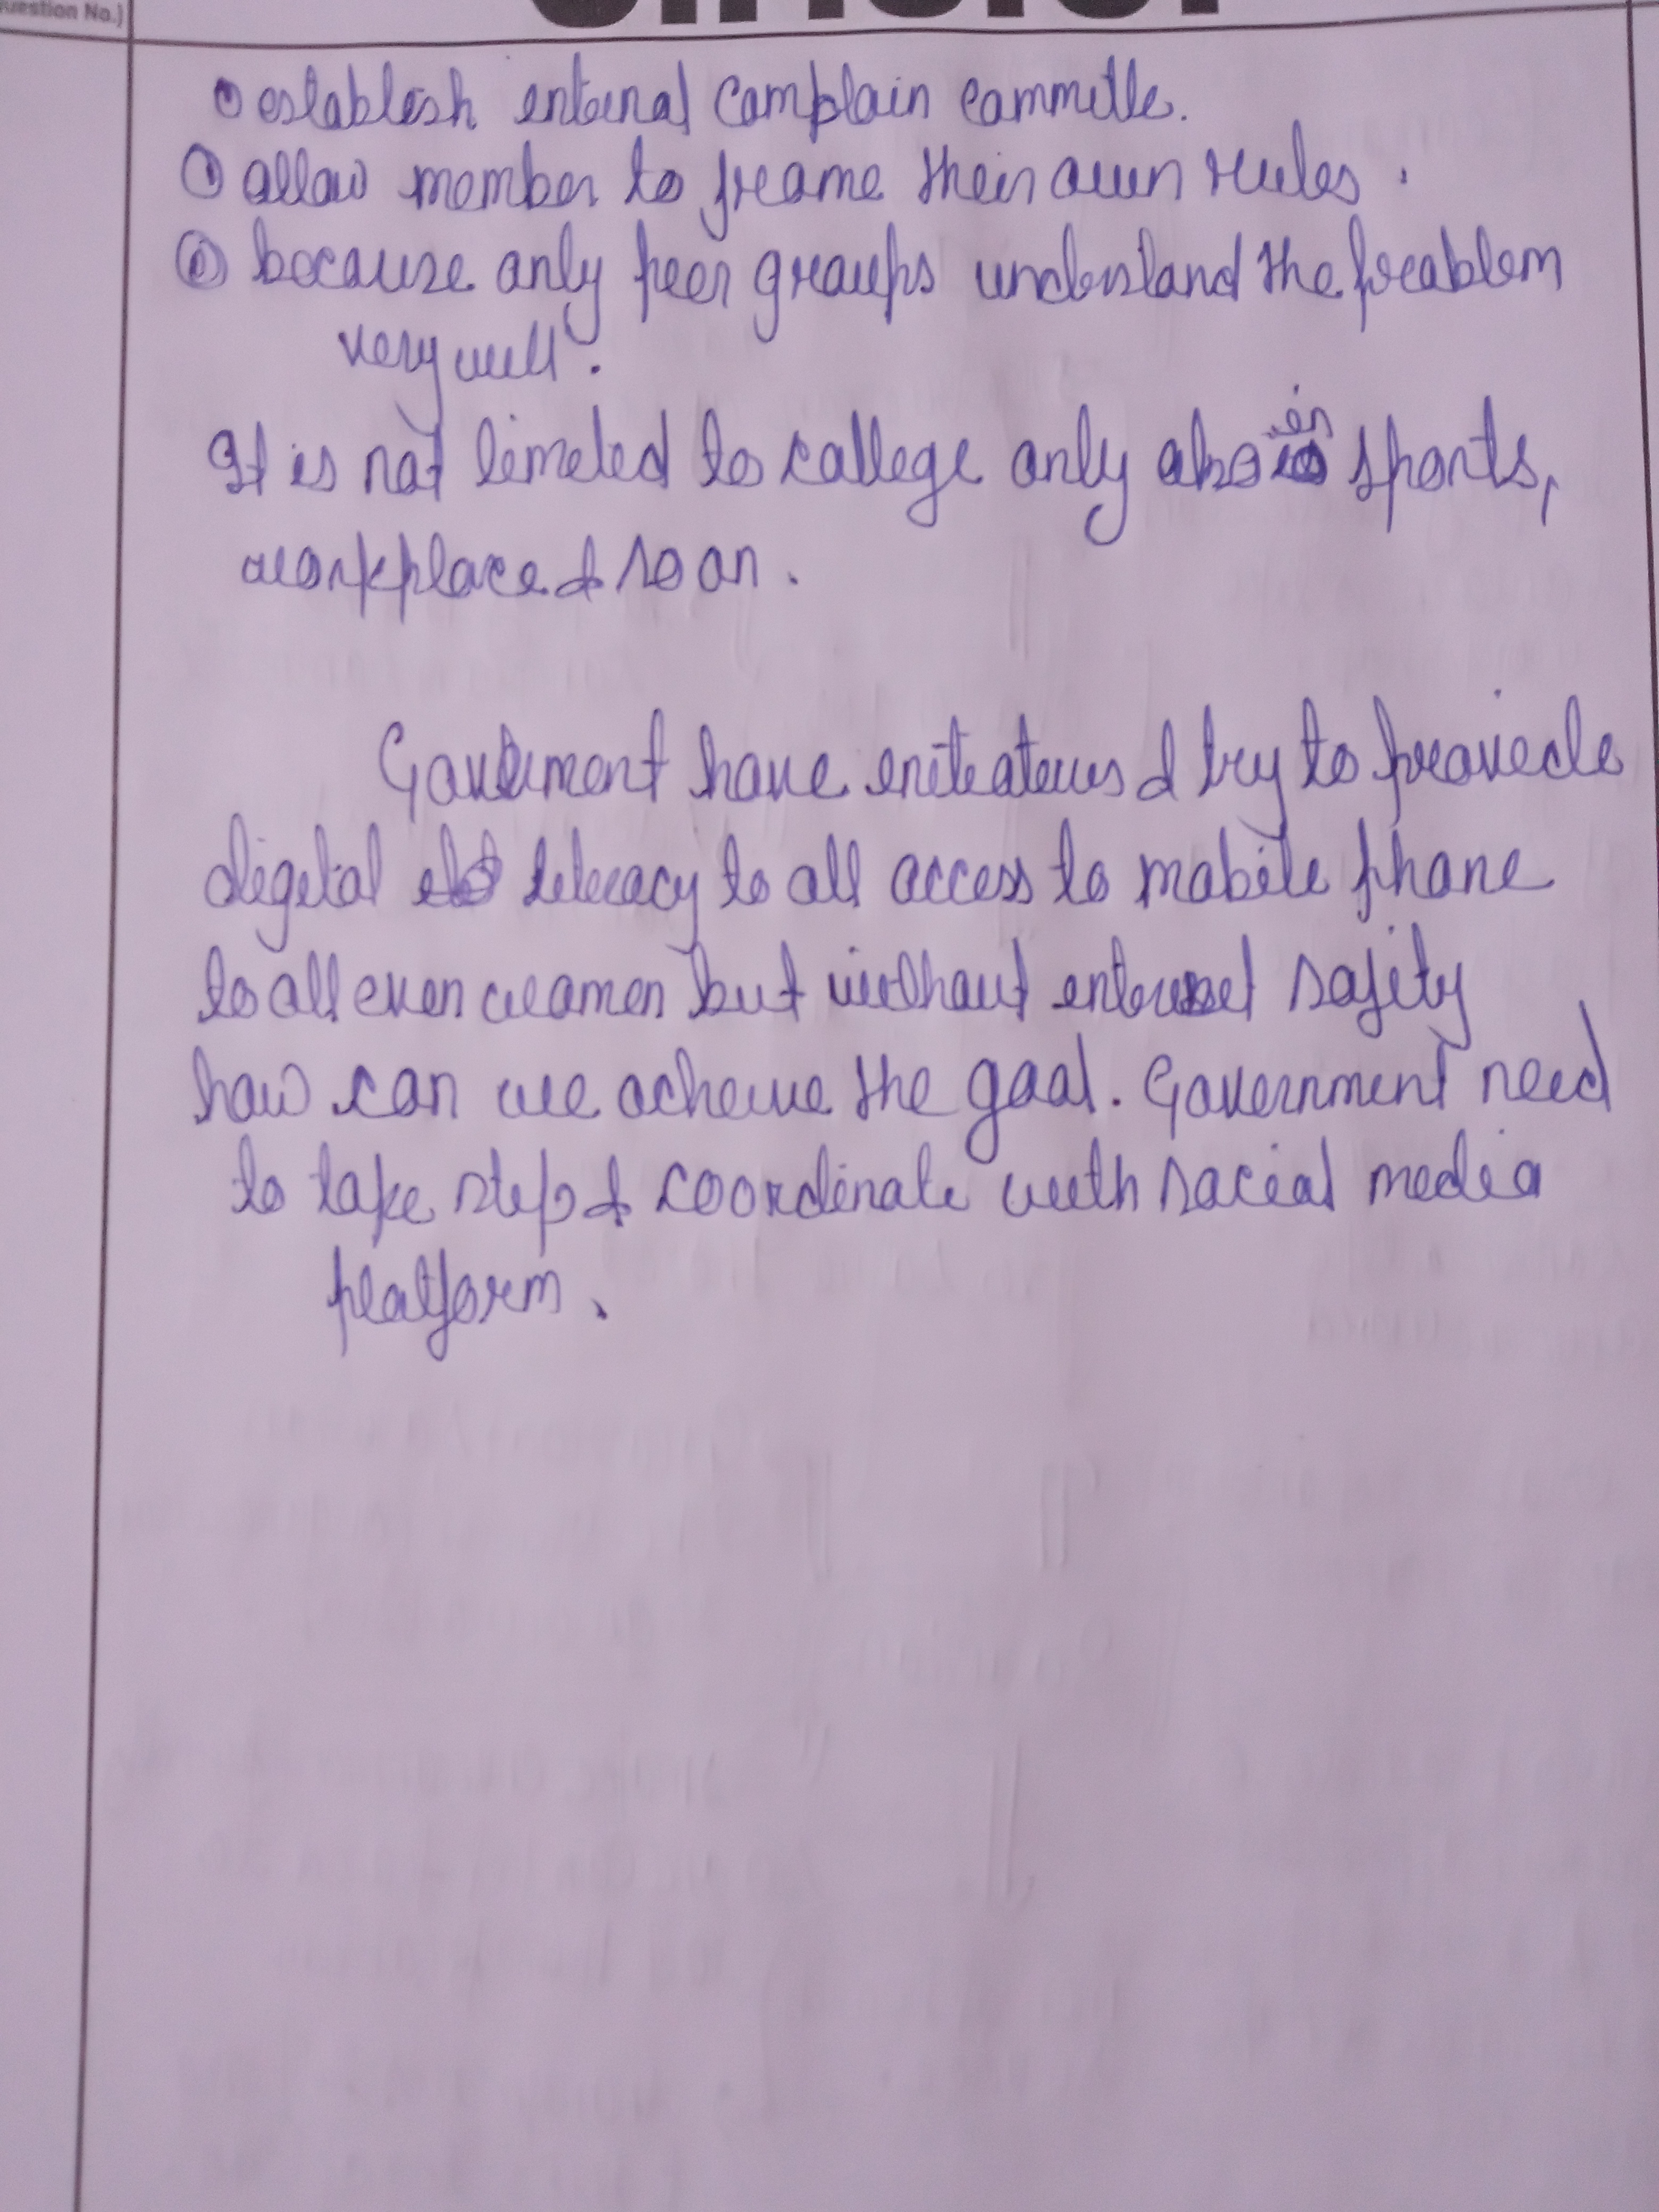 Question No.)
establish internal complain committe.
allow member to frame their own rules.
because only peer groups understand the problem
very well.
It is not limited to college only also in sports,
workplace & so on.
Government have initiatives & try to provide
digital literacy to all access to mobile phone
to all even women but without internet safity
how can we acheive the goal. Government need
to take step & coordinate with social media
platform.